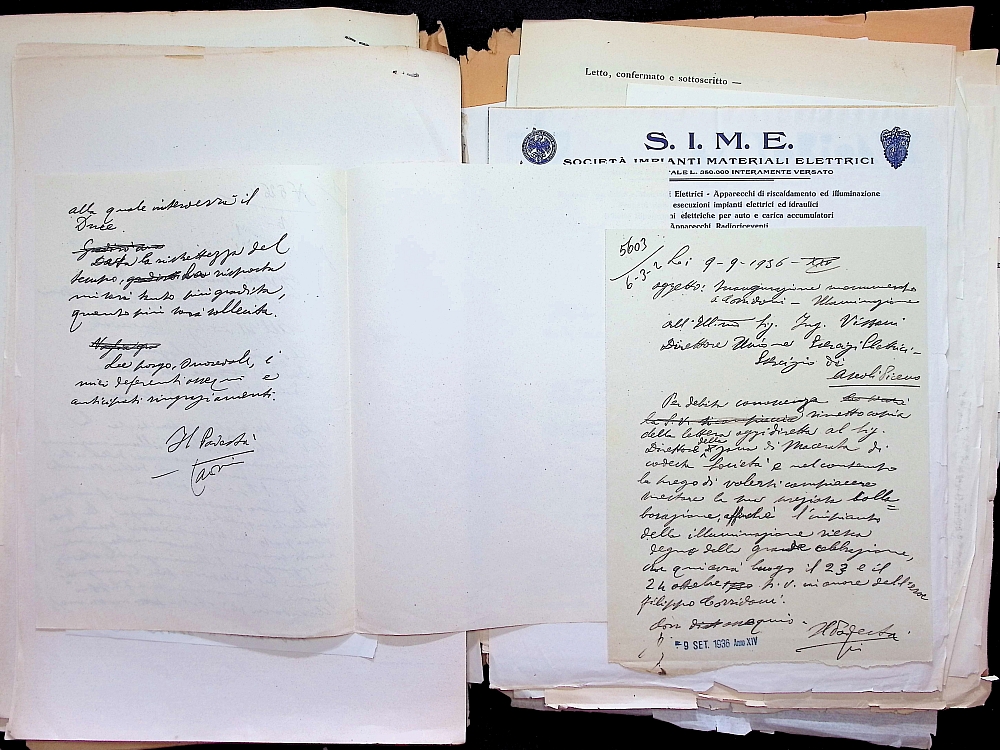 alla quale interverrà il
Duce.
Data la ristrettezza del
tempo, la risposta
mi sarà tanto più gradita,
quanto più sarà sollecita.
Le porgo, Onorevole, i
miei deferenti ossequi e
anticipati ringraziamenti.
Il Podestà
Letto, confermato e sottoscritto —
S. I. M. E.
SOCIETÀ IMPIANTI MATERIALI ELETTRICI
ALE L. 350.000 INTERAMENTE VERSATO
Elettrici - Apparecchi di riscaldamento ed illuminazione
esecuzioni impianti elettrici ed idraulici
ni elettriche per auto e carica accumulatori
Apparecchi Radioriceventi
5603
6-3-2
li 9-9-1936-XIV
oggetto: Inaugurazione monumento
a Corridoni - Illuminazione
All'Ill.mo Sig. Ing. Vissani
Direttore Unione Esercizi Elettrici -
Esercizio di
Ascoli Piceno
Per debita conoscenza
rimetto copia
della lettera oggi diretta al Sig.
Direttore della zona di Macerata di
codesta Società e nel contempo
la prego di volersi compiacere
prestare la sua preziosa colla=
borazione, affinché l'impianto
della illuminazione riesca
degno della grande celebrazione,
che qui avrà luogo il 23 e il
24 ottobre p.v. in onore dell'eroe
Filippo Corridoni.
Con ossequio.
Il Podestà
- 9 SET. 1936 Anno XIV